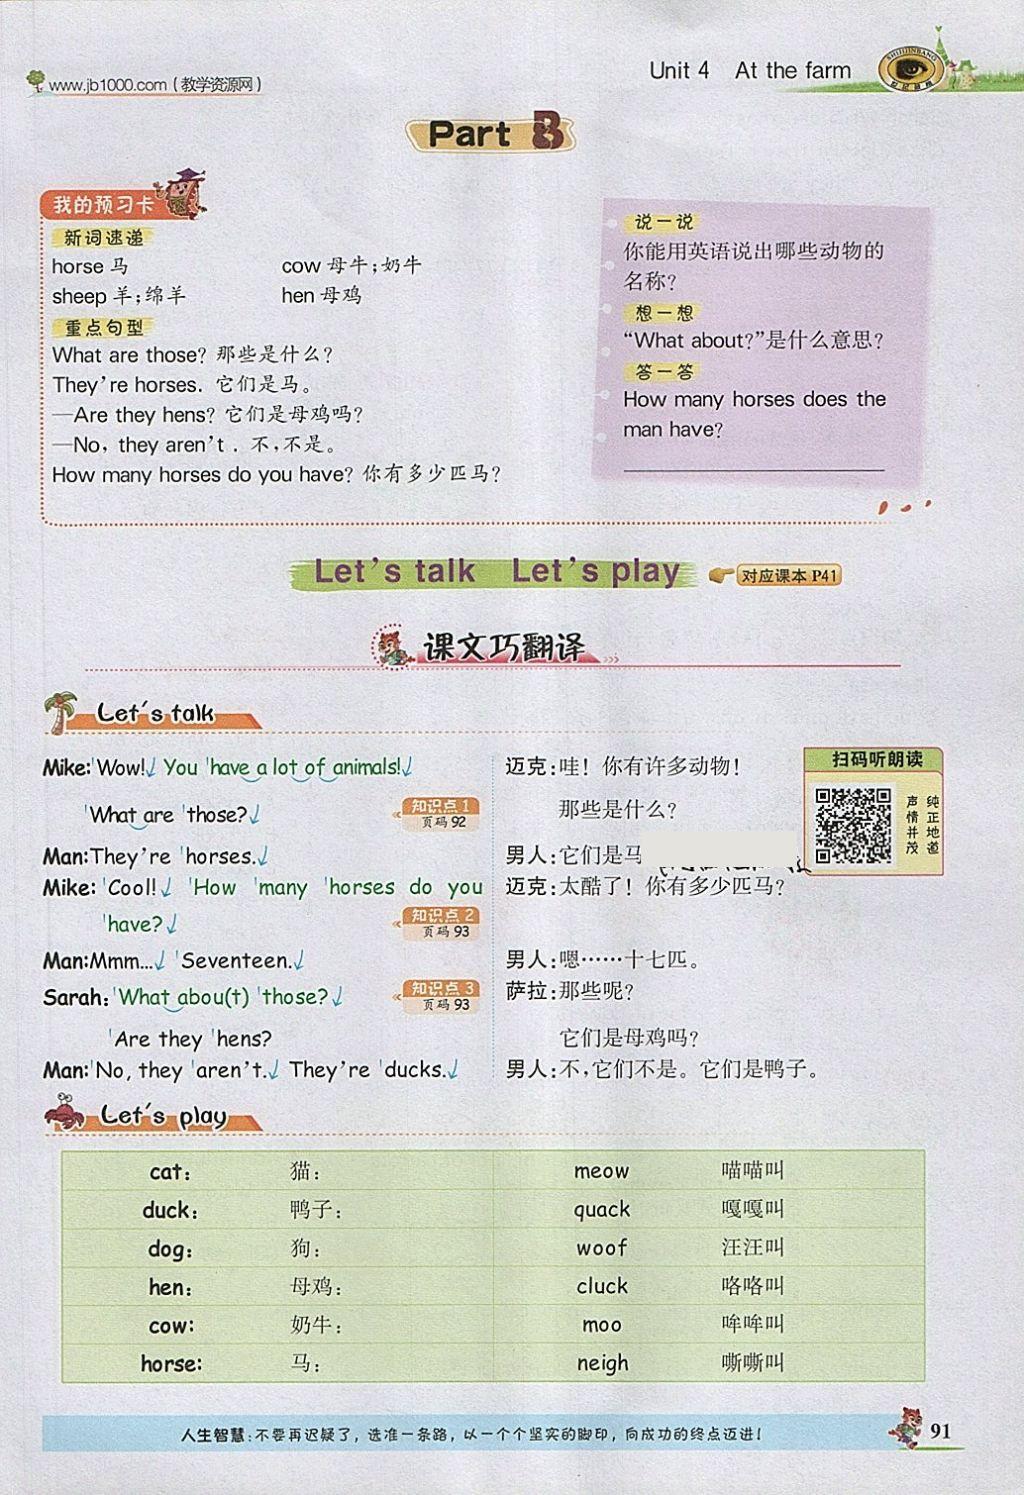 www.jb1000.com(教学资源网)
Unit 4 At the farm
SHIJIINBANG
Part B
我的预习卡
新词速递
horse 马 cow 母牛;奶牛
sheep 羊;绵羊 hen 母鸡
重点句型
What are those? 那些是什么?
They're horses. 它们是马。
—Are they hens? 它们是母鸡吗?
—No, they aren't. 不,不是。
How many horses do you have? 你有多少匹马?
说一说
你能用英语说出哪些动物的
名称?
想一想
“What about?”是什么意思?
答一答
How many horses does the
man have?
Let's talk Let's play 对应课本 P41
课文巧翻译
Let's talk
Mike: 'Wow!↓ You 'have a lot of animals!↓ 迈克:哇!你有许多动物!
'What are 'those?↓ 知识点1 页码 92 那些是什么?
Man: They're 'horses.↓ 男人:它们是马
Mike: 'Cool!↓ 'How 'many 'horses do you 迈克:太酷了!你有多少匹马?
'have?↓ 知识点2 页码 93
Man: Mmm...↓ 'Seventeen.↓ 男人:嗯……十七匹。
Sarah: 'What abou(t) 'those?↓ 知识点3 页码 93 萨拉:那些呢?
'Are they 'hens? 它们是母鸡吗?
Man: 'No, they 'aren't.↓ They're 'ducks.↓ 男人:不,它们不是。它们是鸭子。
扫码听朗读
纯正地道
声情并茂
Let's play
cat: 猫: meow 喵喵叫
duck: 鸭子: quack 嘎嘎叫
dog: 狗: woof 汪汪叫
hen: 母鸡: cluck 咯咯叫
cow: 奶牛: moo 哞哞叫
horse: 马: neigh 嘶嘶叫
人生智慧:不要再迟疑了,选准一条路,以一个个坚实的脚印,向成功的终点迈进!
91